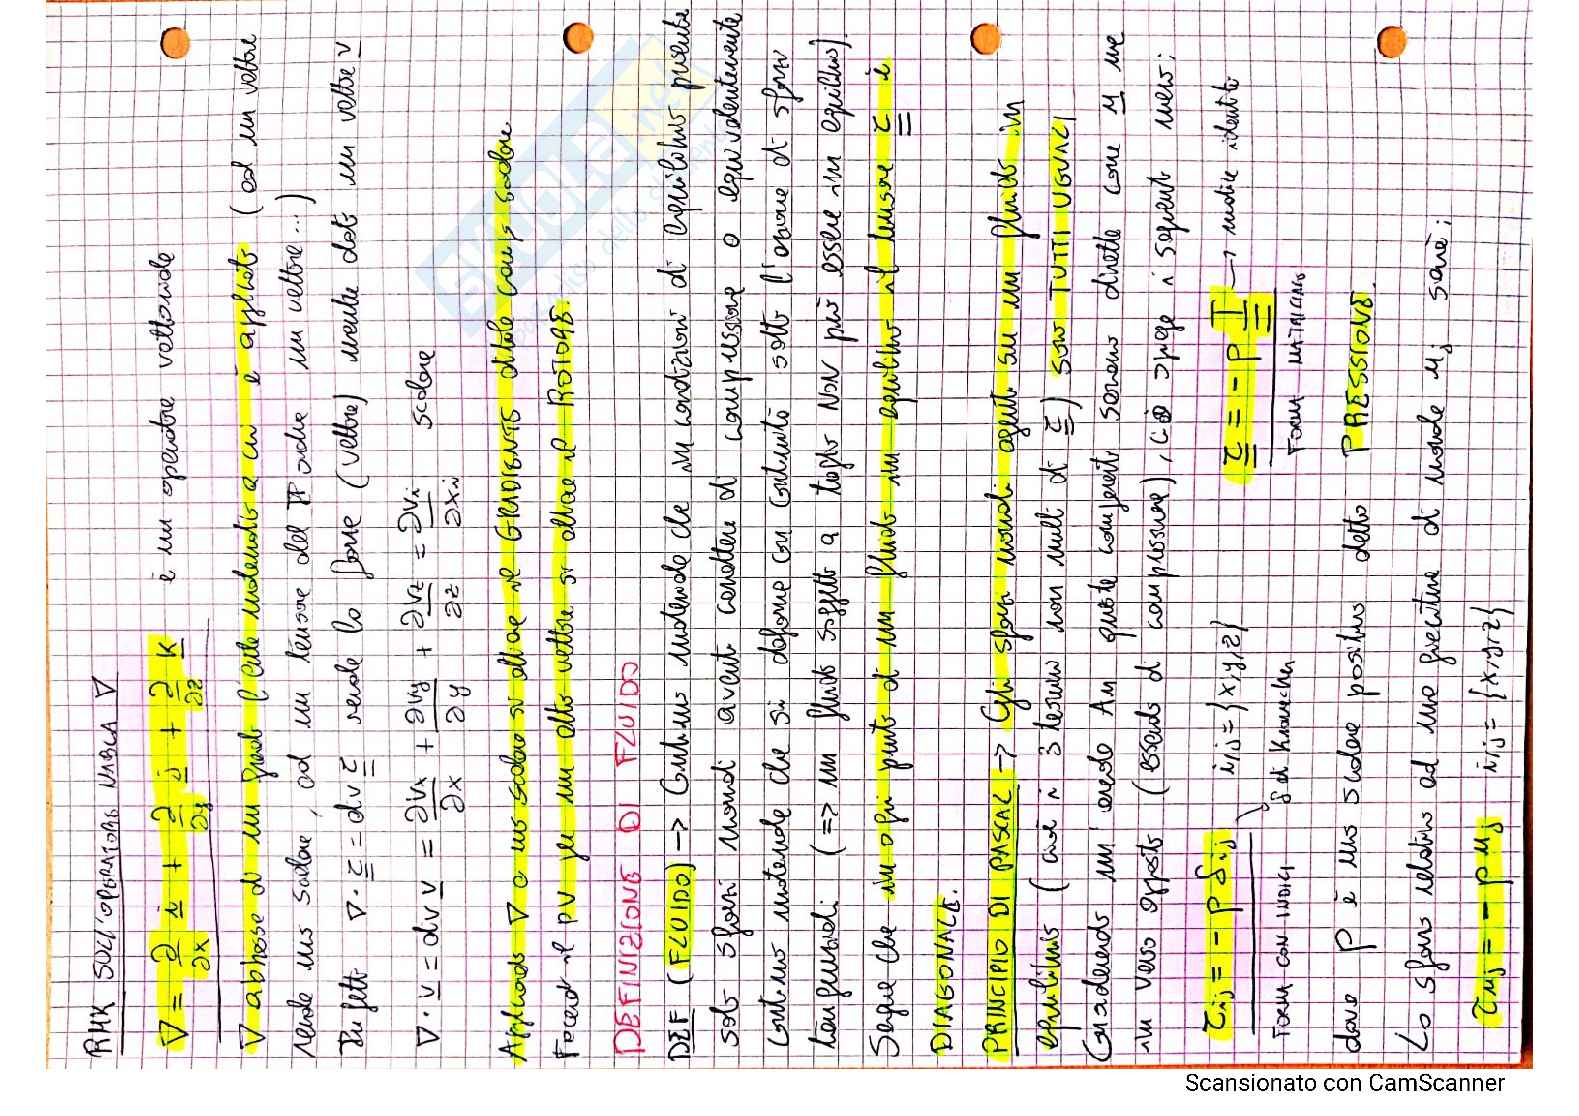 RMK SULL'OPERATORE NABLA ∇
∇ = ∂/∂x i + ∂/∂y j + ∂/∂z k è un operatore vettoriale
∇ abbassa di un grado l'ente matematico a cui è applicato (ad un vettore
rende uno scalare, ad un tensore del II ordine un vettore...)
Di fatti ∇·τ = div τ rende la forma (vettore) mentre dato un vettore v
∇·v = div v = ∂vx/∂x + ∂vy/∂y + ∂vz/∂z = ∂vi/∂xi scalare
Applicando ∇ a uno scalare si ottiene il GRADIENTE di tale campo scalare
Facendo il PV per un altro vettore si ottiene il ROTORE.
DEFINIZIONE DI FLUIDO
DEF (FLUIDO) → Continuo materiale che in condizioni di equilibrio presenta
solo sforzi normali aventi carattere di compressione o equivalentemente
continuo materiale che si deforma con continuità sotto l'azione di sforzi
tangenziali. (=> un fluido soggetto a taglio NON può essere in equilibrio).
Segue che in ogni punto di un fluido in equilibrio il tensore τ è
DIAGONALE.
PRINCIPIO DI PASCAL → Gli sforzi normali agenti su un fluido in
equilibrio (cioè i 3 termini non nulli di τ) sono TUTTI UGUALI
Considerando un' areola An queste componenti saranno dirette come n ma
in verso opposto (essendo di compressione), ciò si spiega i seguenti nessi:
τij = - p δij i,j = {x,y,z} τ = - p I → matrice identità
FORMA CON INDICI δ di Kronecker FORMA MATRICIALE
dove p è uno scalare positivo detto PRESSIONE.
Lo sforzo relativo ad una giacitura di normale nj sarà:
τnj = - p nj i,j = {x,y,z}
Scansionato con CamScanner